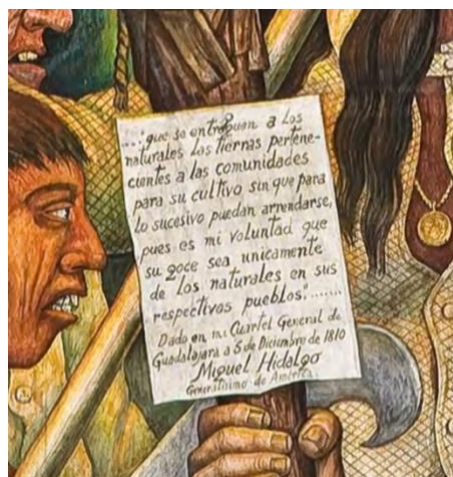 ....."que se entreguen a los
naturales las tierras pertene-
cientes a las comunidades
para su cultivo sin que para
lo sucesivo puedan arrendarse,
pues es mi voluntad que
su goce sea unicamente
de los naturales en sus
respectivos pueblos.".......
Dado en mi Cuartel General de
Guadalajara a 5 de Diciembre de 1810
Miguel Hidalgo
Generalísimo de América